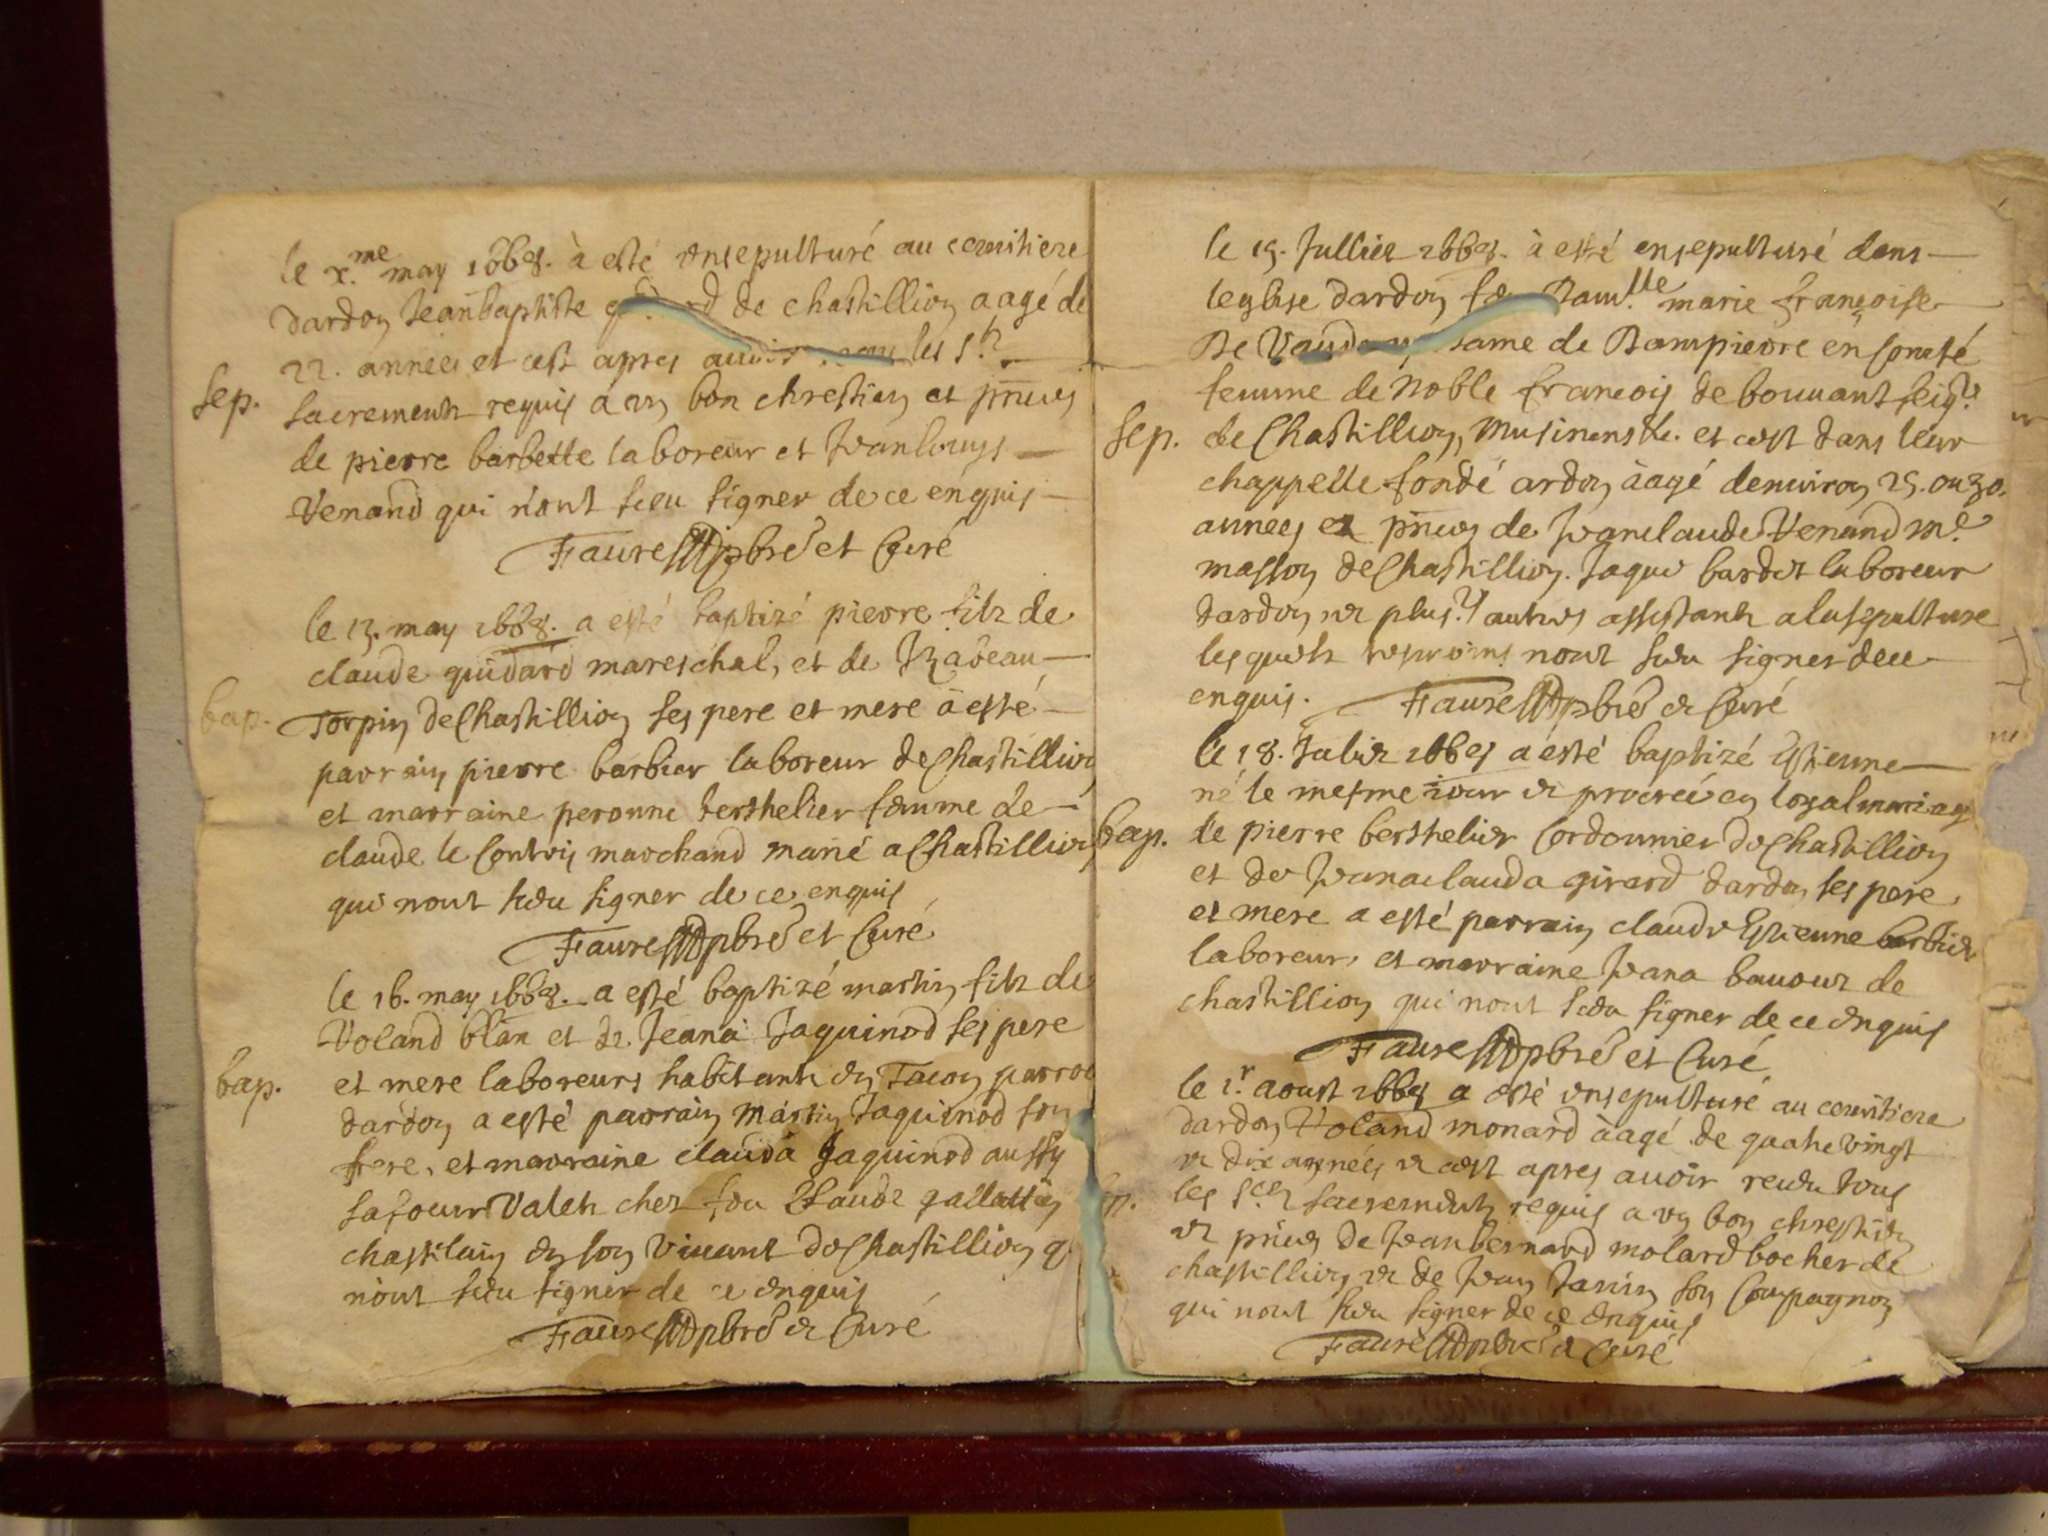 le x.me may 1668. à esté ensepulturé au cemitiere
dardon Jeanbaptiste de chastillion aagé de
22. années et cest apres les Sts
Sep.
sacrements requis a un bon chrestien et pnces
de pierre barbette laboreur et Jeanlouys
Venand qui n'ont sceu signer de ce enquis
Faure pbre et Curé
le 13. may 1668. a esté baptizé pierre filz de
claude guidard mareschal, et de Izabeau
bap.
Torpin de Chastillion ses pere et mere à esté
parrain pierre barbier laboreur de Chastillion
et marraine peronne berthelier femme de
claude le Contois marchand marié a Chastillion
qui nont sceu signer de ce enquis
Faure pbre et Curé
le 16. may 1668. a esté baptizé martin filz de
Voland blan et de Jeana Jaquinod ses pere
bap.
et mere laboreurs habitants en Tacon parroi
dardon a esté parrain Martin Jaquinod son
frere, et marraine clauda Jaquinod aussy
sa soeur Valets chez feu Claude gallattin
chastelain en son Vivant de Chastillion q
n'ont sceu signer de ce enquis
Faure pbre et Curé
le 15. Jullier 1668. à esté ensepulturé dans
leglise dardon feu Dam.lle marie françoise
De dame de Dampierre en comté
femme de Noble françois de bouuant seigr
Sep.
de Chastillion, Musinens &c. et cest dans leur
chappelle fondé ardon àagé denuiron 25. ou 30.
annees et pnces de Jeanclaude Venand me
masson de Chastillion. Jaque bardet laboreur
dardon et plusrs autres assistants a la sepulture
lesquels tesmoins nont sceu signer de ce
enquis.
Faure pbre et Curé
le 18. Julier 1668 a esté baptizé Estienne
né le mesme iour et procreé en loyal mariage
bap.
de pierre berthelier Cordonnier de Chastillion
et de Jeanaclauda girard dardon ses pere
et mere a esté parrain claude Estienne barbier
laboreur, et marraine Jeana bauouz de
chastillion qui nont sceu signer de ce enquis
Faure pbre et Curé
le 1.r aoust 1668 a esté ensepulturé au cemitiere
dardon Voland monard àagé de quatre vingt
et dix années et cest apres auoir receu tous
Sep.
les Scts sacrements requis a un bon chrestien
et pnces de Jeanbernard molard bocher de
chastillion et de Jean Janin son Compagnon
qui nont sceu signer de ce enquis
Faure pbre et Curé